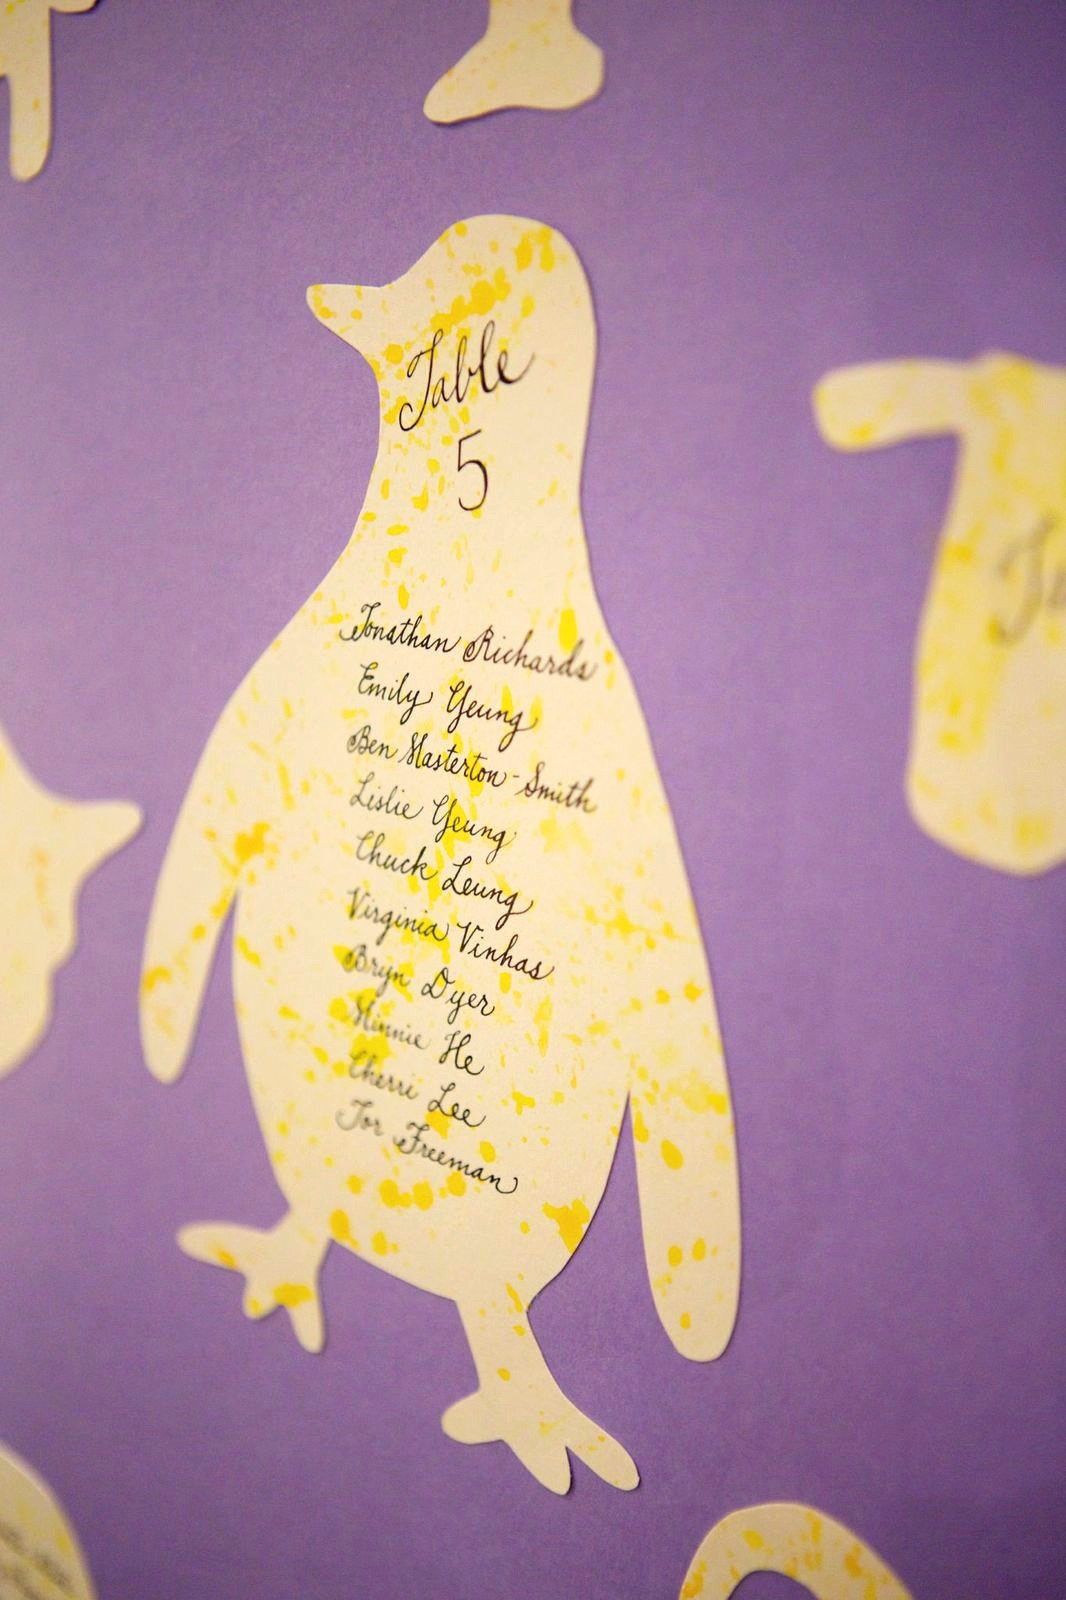 Table
5
Jonathan Richards
Emily Yeung
Ben Masterton-Smith
Lislie Yeung
Chuck Leung
Virginia Vinhas
Bryn Dyer
Minnie He
Cherri Lee
Tor Freeman